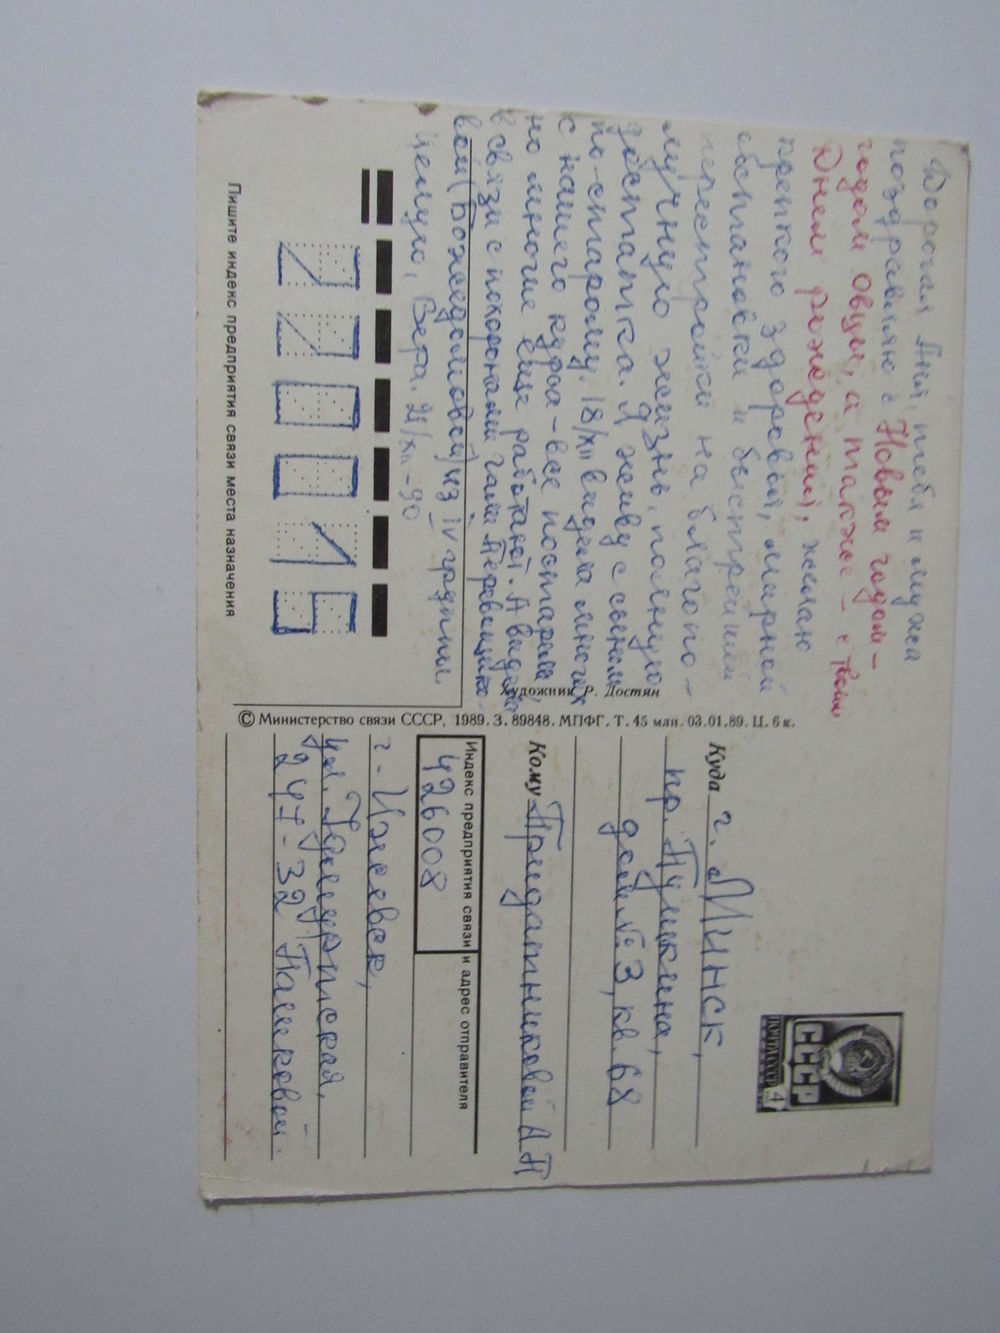 Дорогая Аня, тебя и мужа
поздравляю с Новым годом –
годом овцы, а также – с твоим
Днем рождения, желаю
крепкого здоровья, мирной
обстановки и быстрейшей
перестройки на благопо-
лучную жизнь, полную
достатка. Я живу с сыном
по-старому. 18/XII видела многих
с нашего курса – все постарели
но многие еще работают. А видела
в связи с похоронами Гали Перевощико-
вой (Божедомовой) из IV группы.
Целую, Вера. 21/XII – 90
Пишите индекс предприятия связи места назначения
Художник Р. Достян
© Министерство связи СССР, 1989. З. 89848. МПФГ. Т. 45 млн. 03.01.89. Ц. 6 к.
ПОЧТА СССР 4
СССР
Куда г. Минск,
пр. Пушкина,
дом № 3, кв. 68
Кому Придатниковой А П
Индекс предприятия связи и адрес отправителя
426008
г. Ижевск,
ул. Удмуртская,
247 - 32 Пашковой.